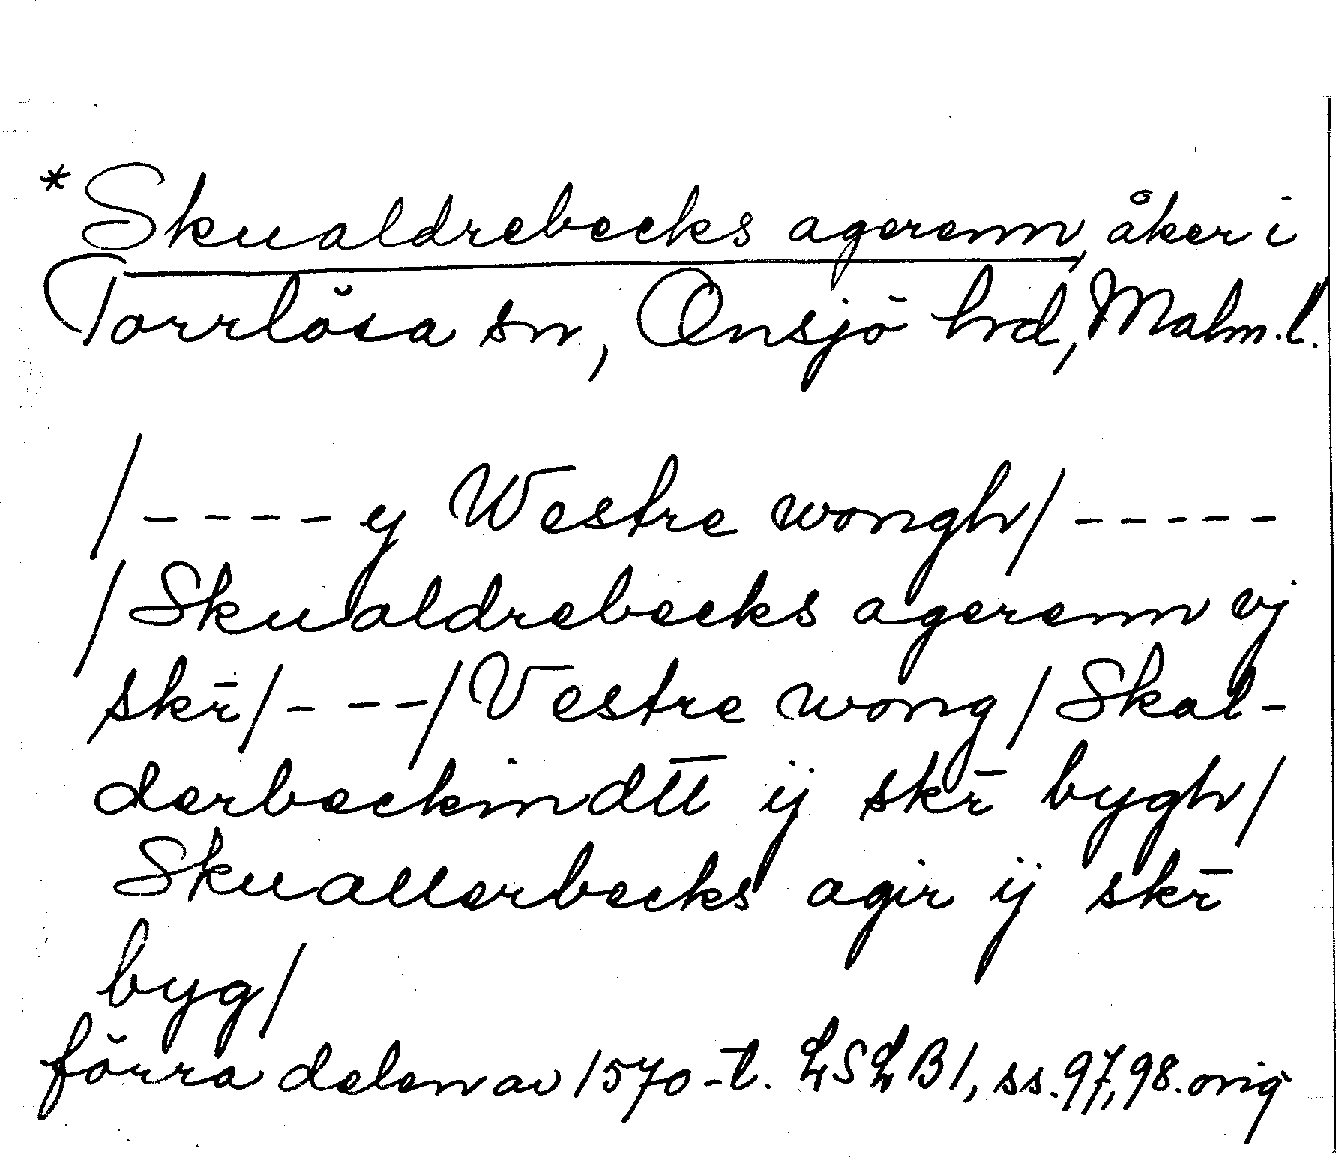 *Skualdrebecks agerenn, åker i
Torrlösa sn, Onsjö hrd, Malm.l.
/----y Westre wongh/-----
/Skualdrebecks agerenn vj
skr̄/---/Vestre wong/Skal-
derbeckindtt ij skr̄ bygh/
Skuallerbecks agir ij skr̄
byg/
förra delen av 1570-t. LSLB1, ss.97,98. orig